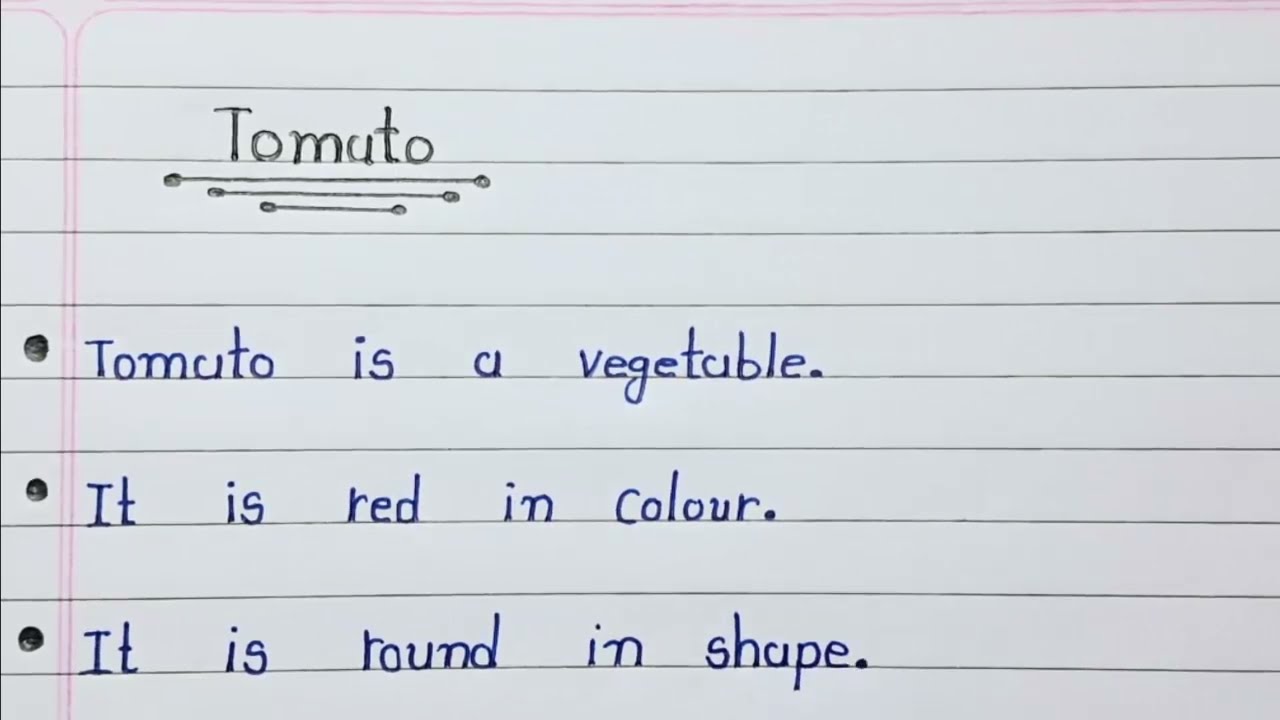 Tomato
Tomato is a vegetable.
It is red in colour.
It is round in shape.